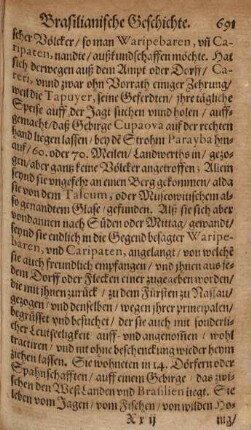 Brasilianische Geschichte. 691
scher Völcker/ so man Waripebaren, uñ Ca-
ripaten, nandte/ außkundschaffen möchte. Hat
sich derwegen auß dem Ampt oder Dorff/ Ca-
reri, vnnd zwar ohn Vorrath einiger Zehrung/
weil die Tapuyer, seine Geferdten/ jhre tägliche
Speise auff der Jagt suchen vnnd holen/ auff-
gemacht/ daß Gebirge Cupaova auf der rechten
hand liegen lassen/ bey dē Strohm Parayba hin-
auf/ 60. oder 70. Meilen/ Landwerths in/ gezo-
gen/ aber gantz keine Völcker angetroffen: Allein
seynd sie ungefehr an einen Berg gekommen/ alda
sie von dem Talcum, oder Muscowinschem al-
so genandtem Glase/ gefunden. Alß sie sich aber
vondannen nach Süden oder Mittag/ gewandt/
seynd sie endlich in die Gegend besagter Waripe-
baren, und Caripaten, angelangt/ von welchē
sie auch freundlich empfangen/ und jhnen aus je-
dem Dorff oder Flecken einer zugegeben worden/
die mit jhnen zurück/ zu dem Fürsten zu Nassau/
gezogen/ und denselben/ wegen jhrer principalen/
begrüsset und besuchet/ der sie auch mit sonderli-
cher Leutseligkeit auff- und angenommen/ wohl
tractiren/ und mit ohne beschenckung wieder heym
ziehen lassen. Sie wohneten in 14. Dörfern oder
Spahnschafften/ auff einem Gebirge/ das zwi-
schen den West Landen und Brasilien liegt. Sie
leben vom Jagen/ vom Fischen/ von wilden Ho-
X x ij nig/